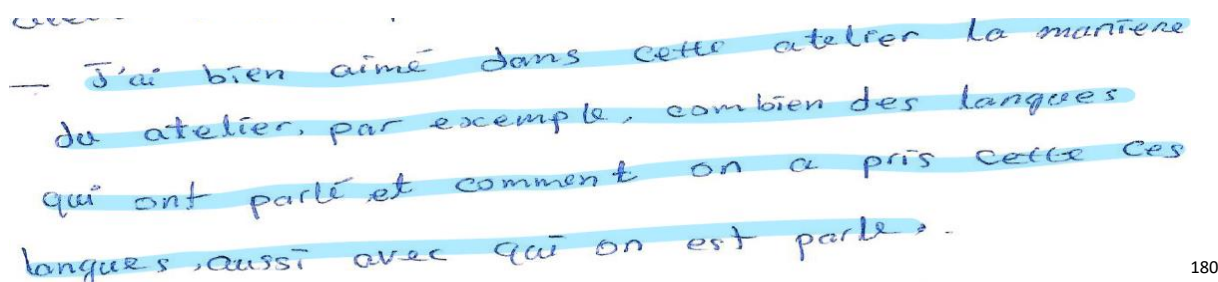 — J'ai bien aimé dans cette atelier la manière
du atelier. par excemple. combien des langues
qui ont parlé et comment on a pris cette ces
langues, aussi avec qui on est parle.
180